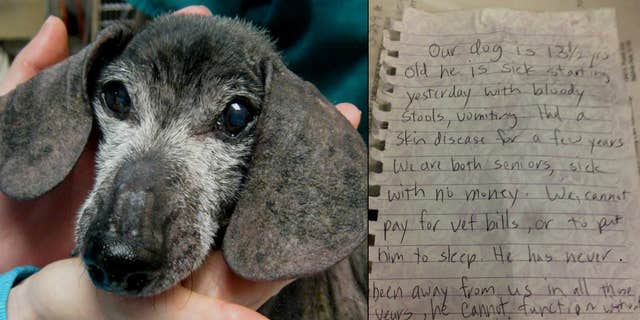 Our dog is 13½ yrs
old he is sick starting
yesterday with bloody
stools, vomiting Had a
skin disease for a few years
We are both seniors, sick
with no money. We, cannot
pay for vet bills, or to put
him to sleep. He has never.
been away from us in all those
years, he cannot function